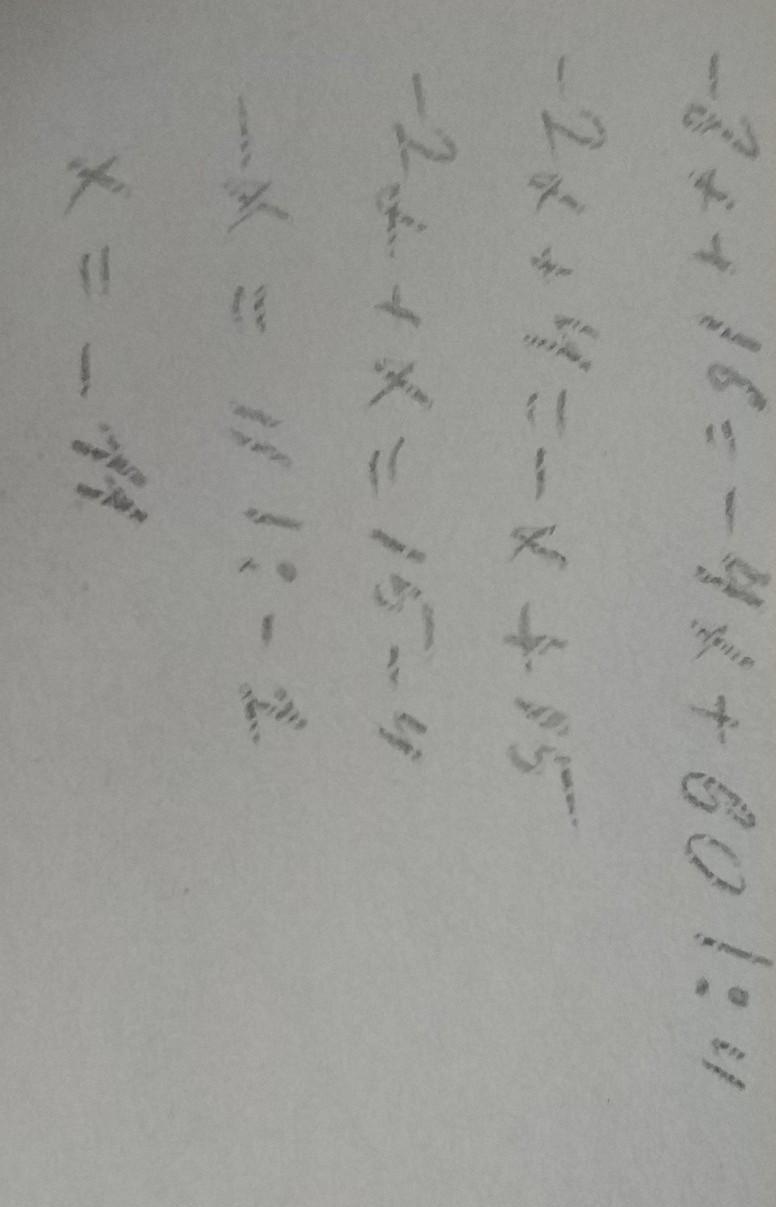 -8x+16=-4x+60 |:4
-2x+4=-x+15
-2x+x=15-4
-x=11 |:-1
x=-11